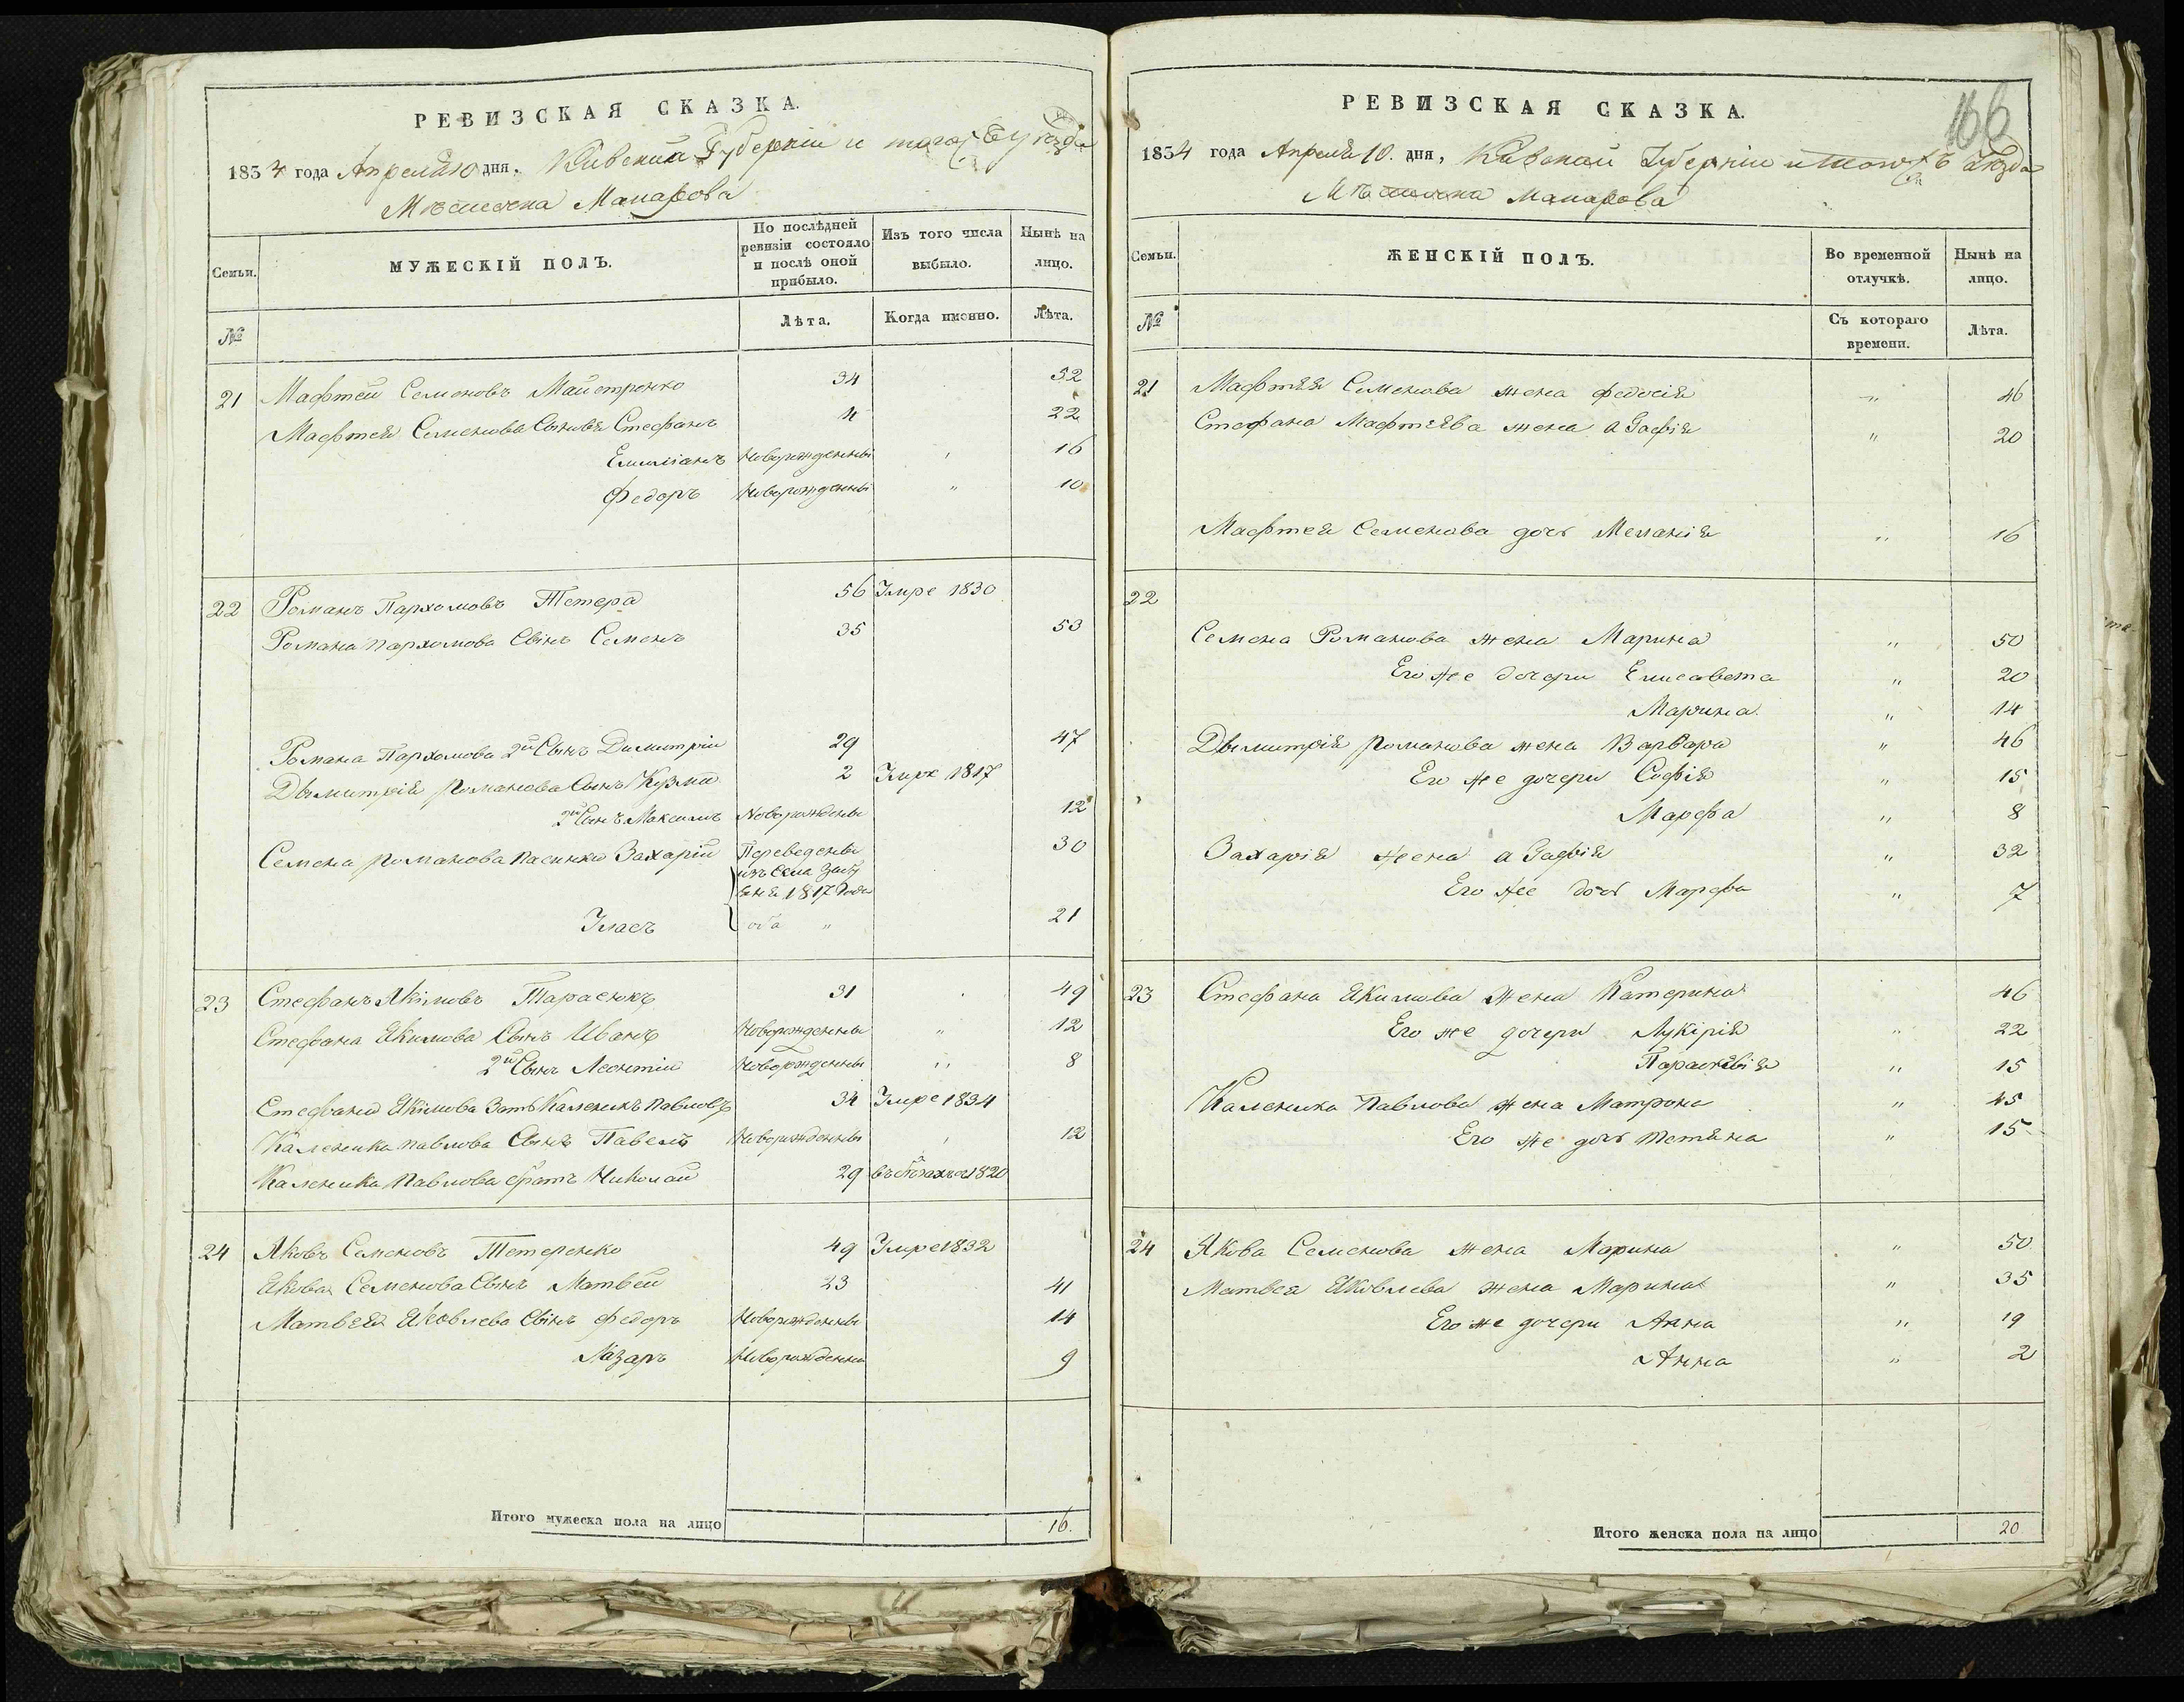 РЕВИЗСКАЯ СКАЗКА.
1834 года Апреля 10 дня. Киевской Губернии и того же уезда
Мѣстечка Макарова
Семьи.
МУЖЕСКІЙ ПОЛЪ.
По послѣдней ревизіи состояло и послѣ оной прибыло.
Изъ того числа выбыло.
Нынѣ на лицо.
№
Лѣта.
Когда именно.
Лѣта.
21 Мафтей Семеновъ Майстренко 34 52
Мафтея Семенова Сыновья Стефанъ 4 22
Емиліанъ Новорожденный 16
Федоръ Новорожденный " 10
22 Романъ Пархомовъ Тетера 56 Умре 1830
Романа Пархомова Сынъ Семенъ 35 53
Романа Пархомова 2й Сынъ Димитрій 29 47
Дымитрія Романова Сынъ Кузма 2 Умре 1817
2й Сынъ Максимъ Новорожденный 12
Семена Романова пасынки Захарій Переведены 30
изъ Села
1817 Года
Уласъ оба " 21
23 Стефанъ Якимовъ Тарасюкъ 31 49
Стефана Якимова Сынъ Иванъ Новорожденный " 12
2й Сынъ Леонтій Новорожденный " 8
Стефана Якимова Зять Каленикъ Павловъ 34 Умре 1834
Каленика Павлова Сынъ Павелъ Новорожденный 12
Каленика Павлова братъ Николай 29 въ бѣгахъ 1820
24 Яковъ Семеновъ Тетеренко 49 Умре 1832
Якова Семенова Сынъ Матвѣй 23 41
Матвея Яковлева Сынъ Федоръ Новорожденный 14
Лазаръ Новорожденный 9
Итого мужеска пола на лицо 16.
166
РЕВИЗСКАЯ СКАЗКА.
1834 года Апреля 10. дня, Киевской Губернии и того же уезда
Мѣстечка Макарова
Семьи.
ЖЕНСКІЙ ПОЛЪ.
Во временной отлучкѣ.
Нынѣ на лицо.
№
Съ котораго времени.
Лѣта.
21 Мафтея Семенова жена Федосія " 46
Стефана Мафтеева жена Агафія " 20
Мафтея Семенова дочь Меланія " 16
22
Семена Романова жена Марина " 50
Его же дочери Елисавета " 20
Марина " 14
Дымитрія Романова жена Варвара " 46
Его же дочери Софія " 15
Марфа " 8
Захарія жена Агафія " 32
Его же дочь Марфа " 7
23 Стефана Якимова жена Катерина 46
Его же дочери Лукірія " 22
Параскевія " 15
Каленика Павлова жена Матрона " 45
Его же дочь Тетяна " 15
24 Якова Семенова жена Марина " 50
Матвея Яковлева жена Марина " 35
Его же дочери Анна " 19
Анна " 2
Итого женска пола на лицо 20